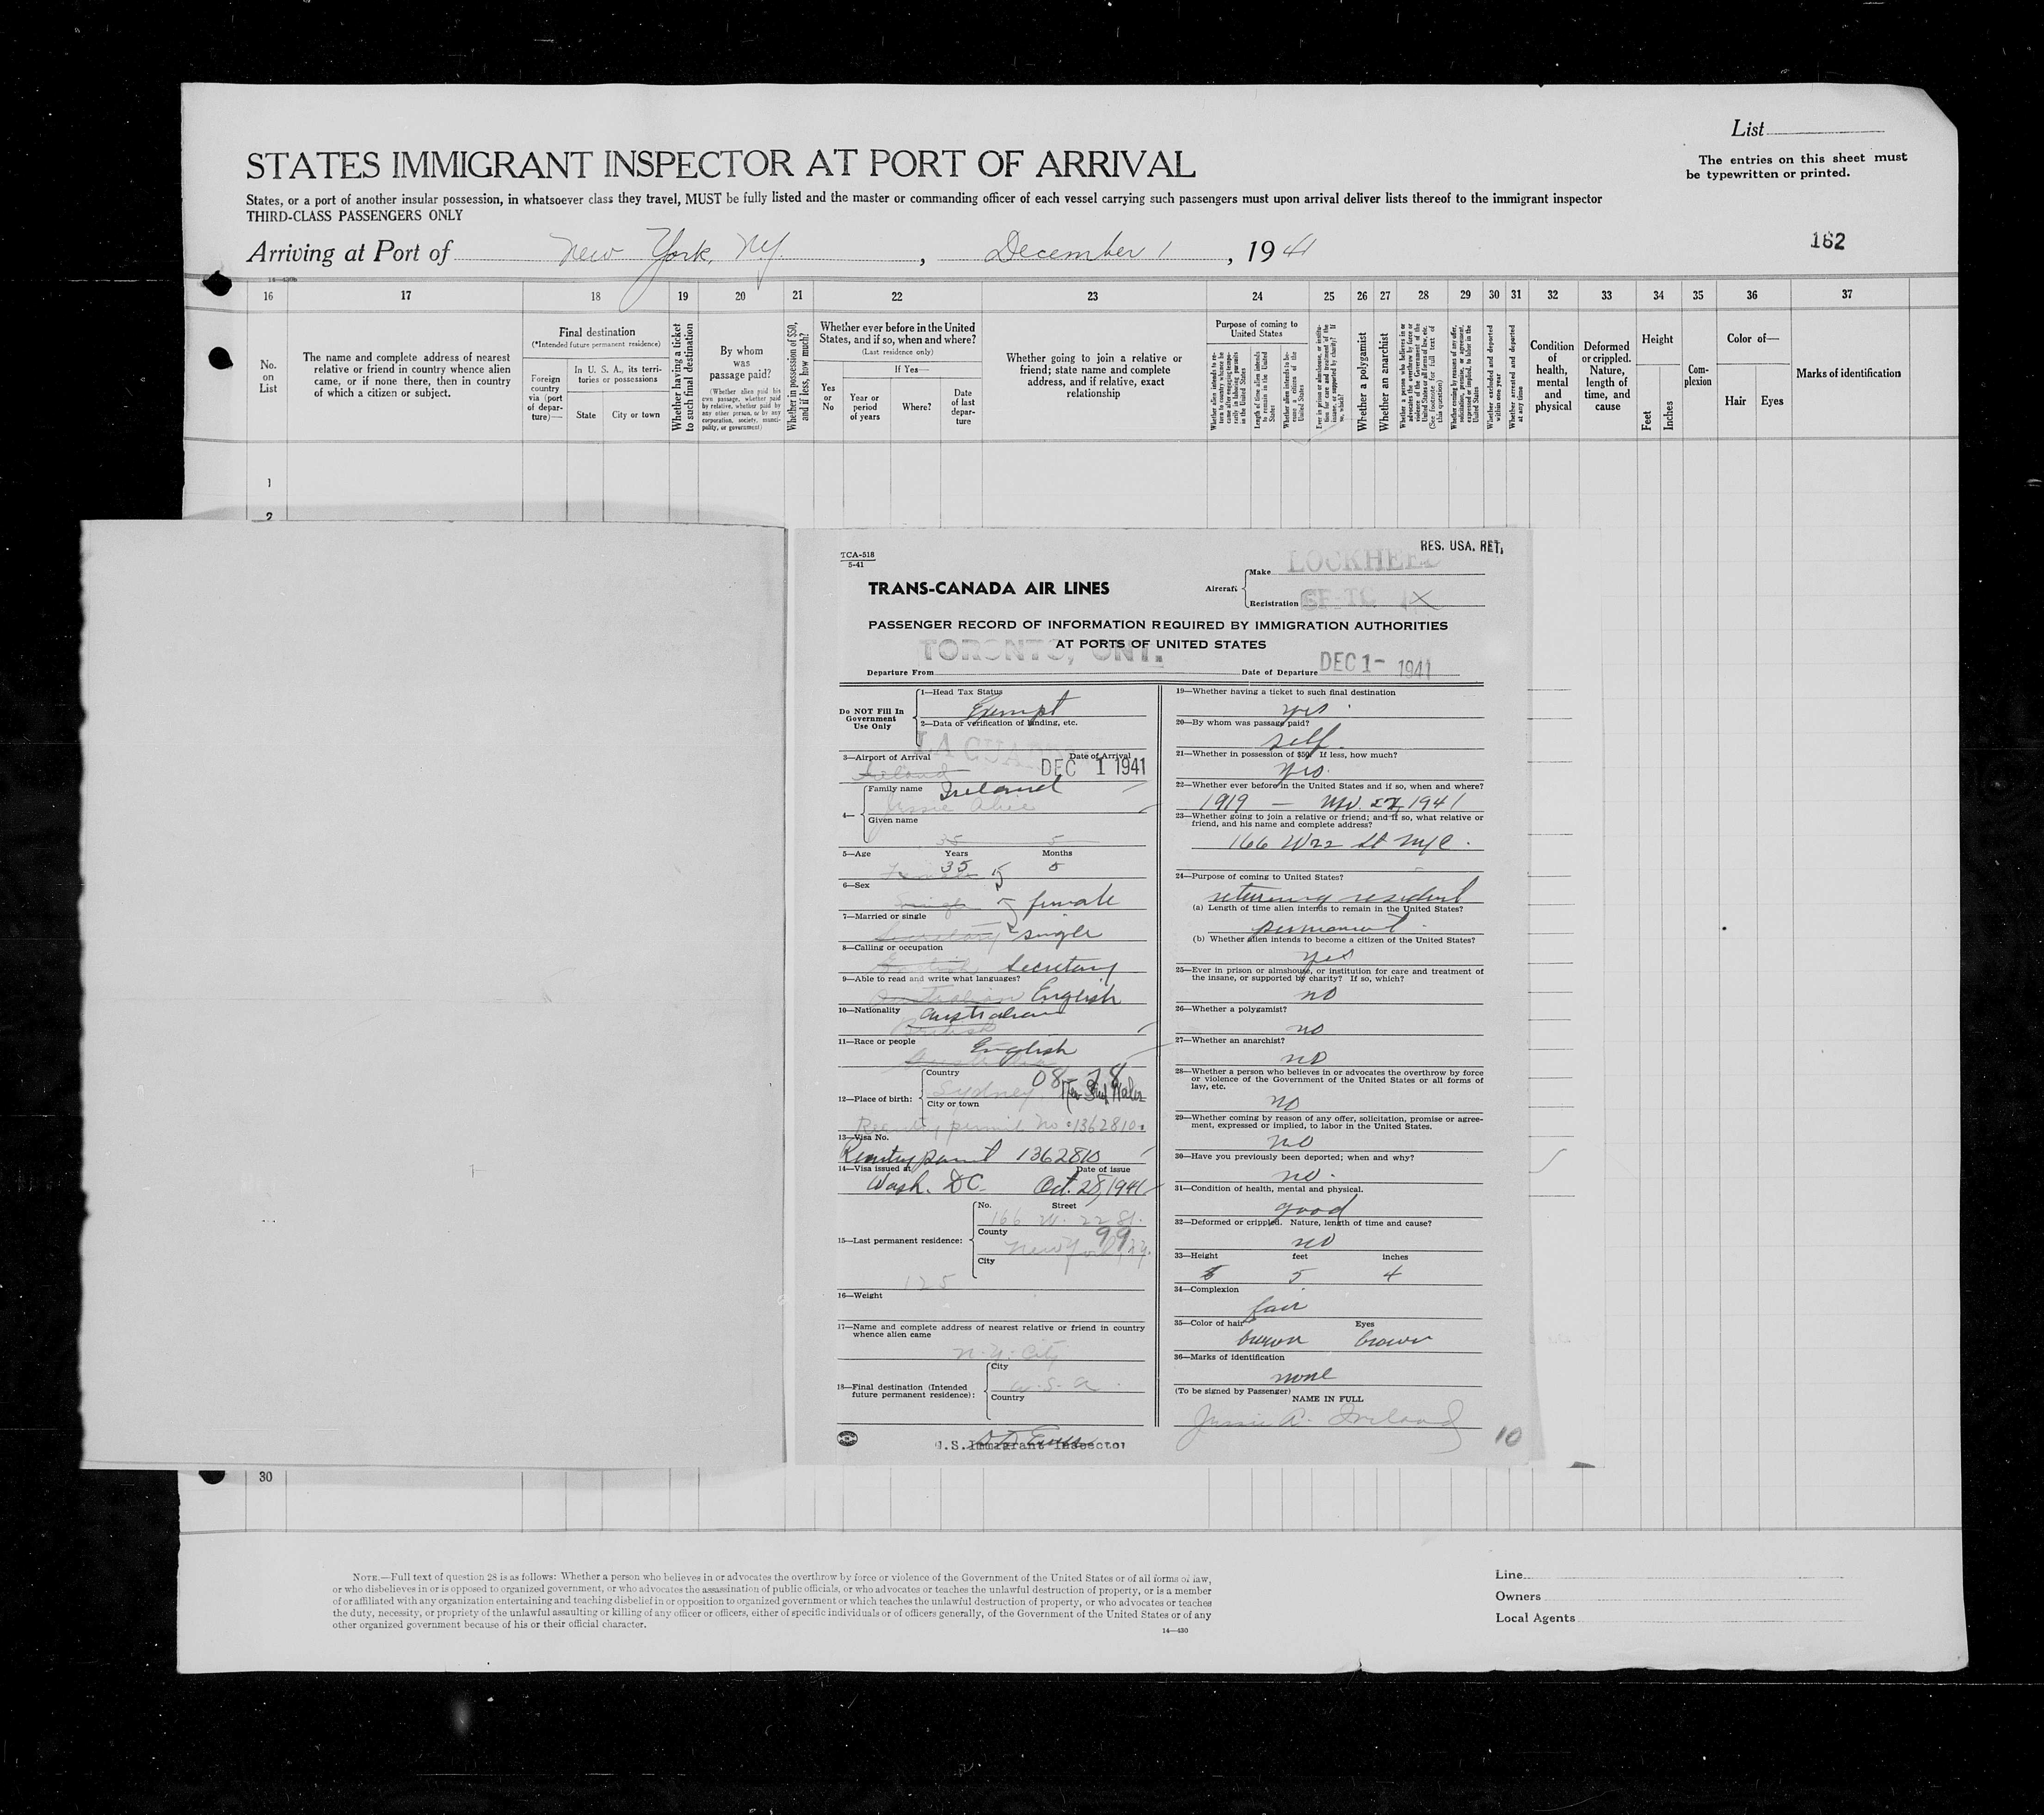 List
STATES IMMIGRANT INSPECTOR AT PORT OF ARRIVAL
The entries on this sheet must
be typewritten or printed.
States, or a port of another insular possession, in whatsoever class they travel, MUST be fully listed and the master or commanding officer of each vessel carrying such passengers must upon arrival deliver lists thereof to the immigrant inspector
THIRD-CLASS PASSENGERS ONLY
Arriving at Port of New York, NY. , December 1 , 1941
162
16 17 18 19 20 21 22 23 24 25 26 27 28 29 30 31 32 33 34 35 36 37
No. on List
The name and complete address of nearest
relative or friend in country whence alien
came, or if none there, then in country
of which a citizen or subject.
Final destination
(*Intended future permanent residence)
Foreign country via (port of departure)—
In U. S. A., its territories or possessions
State
City or town
Whether having a ticket to such final destination
By whom was passage paid?
(Whether alien paid his own passage, whether paid by relative, whether paid by any other person, or by any corporation, society, municipality, or government)
Whether in possession of $50, and if less, how much?
Whether ever before in the United
States, and if so, when and where?
(Last residence only)
If Yes—
Yes or No
Year or period of years
Where?
Date of last departure
Whether going to join a relative or
friend; state name and complete
address, and if relative, exact
relationship
Purpose of coming to United States
Whether alien intends to return to country whence he came after engaging temporarily in laboring pursuits in the United States
Length of time alien intends to remain in the United States
Whether alien intends to become a citizen of the United States
Ever in prison or almshouse, or institution for care and treatment of the insane, or supported by charity? If so, which?
Whether a polygamist
Whether an anarchist
Whether a person who believes in or advocates the overthrow by force or violence of the Government of the United States or all forms of law, etc. (See footnote for full text of this question)
Whether coming by reason of any offer, solicitation, promise, or agreement, expressed or implied, to labor in the United States
Whether excluded and deported within one year
Whether arrested and deported at any time
Condition of health, mental and physical
Deformed or crippled. Nature, length of time, and cause
Height
Feet
Inches
Complexion
Color of—
Hair
Eyes
Marks of identification
1
2
TCA-518
5-41
RES. USA. RET.
TRANS-CANADA AIR LINES
Aircraft
Make LOCKHEED
Registration CF-TC
PASSENGER RECORD OF INFORMATION REQUIRED BY IMMIGRATION AUTHORITIES
AT PORTS OF UNITED STATES
Departure From TORONTO, ONT.
Date of Departure DEC 1- 1941
Do NOT Fill In Government Use Only
1—Head Tax Status
Exempt
2—Data or verification of landing, etc.
LA GUAR
3—Airport of Arrival
Date of Arrival
Ireland
DEC 1 1941
4—
Family name Ireland
Jessie Alice
Given name
35 5
5—Age Years Months
35 5
6—Sex
female
7—Married or single
Secretary single
8—Calling or occupation
Secretary
9—Able to read and write what languages?
Australian English
10—Nationality Australian
British
11—Race or people English
12—Place of birth:
Country 08-78
Sydney New South Wales
City or town
Reentry permit No. 1362810
13—Visa No.
Reentry permit 1362810
14—Visa issued at Date of issue
Wash. DC. Oct. 28, 1941
15—Last permanent residence:
No. Street
166 W. 22 St.
County 99
New York, N.Y.
City
125
16—Weight
17—Name and complete address of nearest relative or friend in country
whence alien came
N.Y. City
18—Final destination (Intended
future permanent residence):
City
U.S.A.
Country
U.S. Immigrant Inspector
19—Whether having a ticket to such final destination
yes
20—By whom was passage paid?
self
21—Whether in possession of $50? If less, how much?
yes
22—Whether ever before in the United States and if so, when and where?
1919 — Nov. 1941
23—Whether going to join a relative or friend; and if so, what relative or
friend, and his name and complete address?
166 W 22 St NYC.
24—Purpose of coming to United States?
returning resident
(a) Length of time alien intends to remain in the United States?
permanent
(b) Whether alien intends to become a citizen of the United States?
yes
25—Ever in prison or almshouse, or institution for care and treatment of
the insane, or supported by charity? If so, which?
no
26—Whether a polygamist?
no
27—Whether an anarchist?
no
28—Whether a person who believes in or advocates the overthrow by force
or violence of the Government of the United States or all forms of
law, etc.
no
29—Whether coming by reason of any offer, solicitation, promise or agree-
ment, expressed or implied, to labor in the United States.
no
30—Have you previously been deported; when and why?
no
31—Condition of health, mental and physical.
good
32—Deformed or crippled. Nature, length of time and cause?
no
33—Height feet inches
5 4
34—Complexion
fair
35—Color of hair Eyes
brown brown
36—Marks of identification
none
(To be signed by Passenger)
NAME IN FULL
Jessie A. Ireland
10
30
NOTE.—Full text of question 28 is as follows: Whether a person who believes in or advocates the overthrow by force or violence of the Government of the United States or of all forms of law,
or who disbelieves in or is opposed to organized government, or who advocates the assassination of public officials, or who advocates or teaches the unlawful destruction of property, or is a member
of or affiliated with any organization entertaining and teaching disbelief in or opposition to organized government or which teaches the unlawful destruction of property, or who advocates or teaches
the duty, necessity, or propriety of the unlawful assaulting or killing of any officer or officers, either of specific individuals or of officers generally, of the Government of the United States or of any
other organized government because of his or their official character.
14—430
Line
Owners
Local Agents